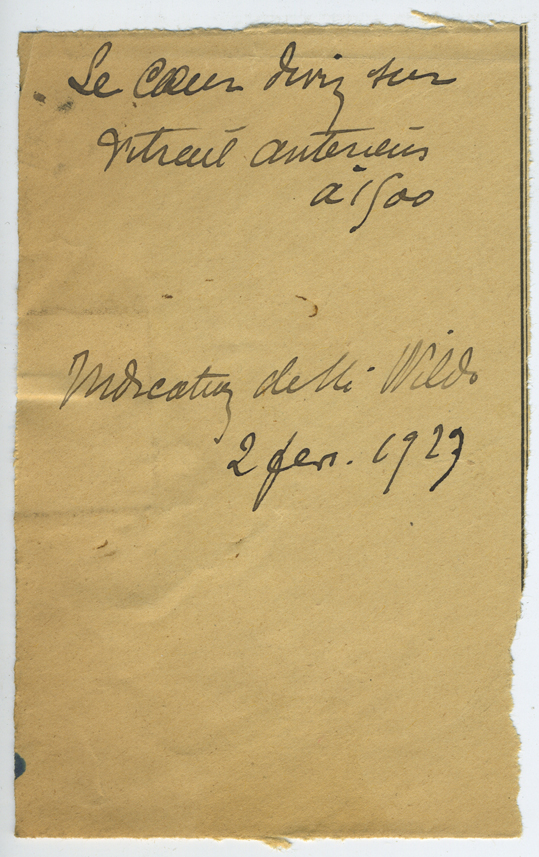 Le Cœur divin sur
vitrail antérieur
à 1500
Indication de Mr Wilde
2 fev. 1929